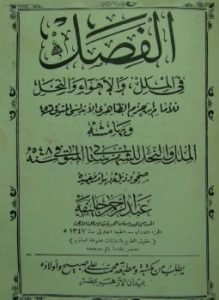 الفصل
في الملل والأهواء والنحل
للإمام ابن حزم الظاهري الأندلسي المتوفى سنة ٤٥٦
وبهامشه
الملل والنحل للشهرستاني المتوفى سنة ٥٤٨
عبد الرحمن خليفة
الطبعة الأولى سنة ١٣٤٧
يطلب من مكتبة ومطبعة محمد علي صبيح وأولاده
بميدان الأزهر بمصر